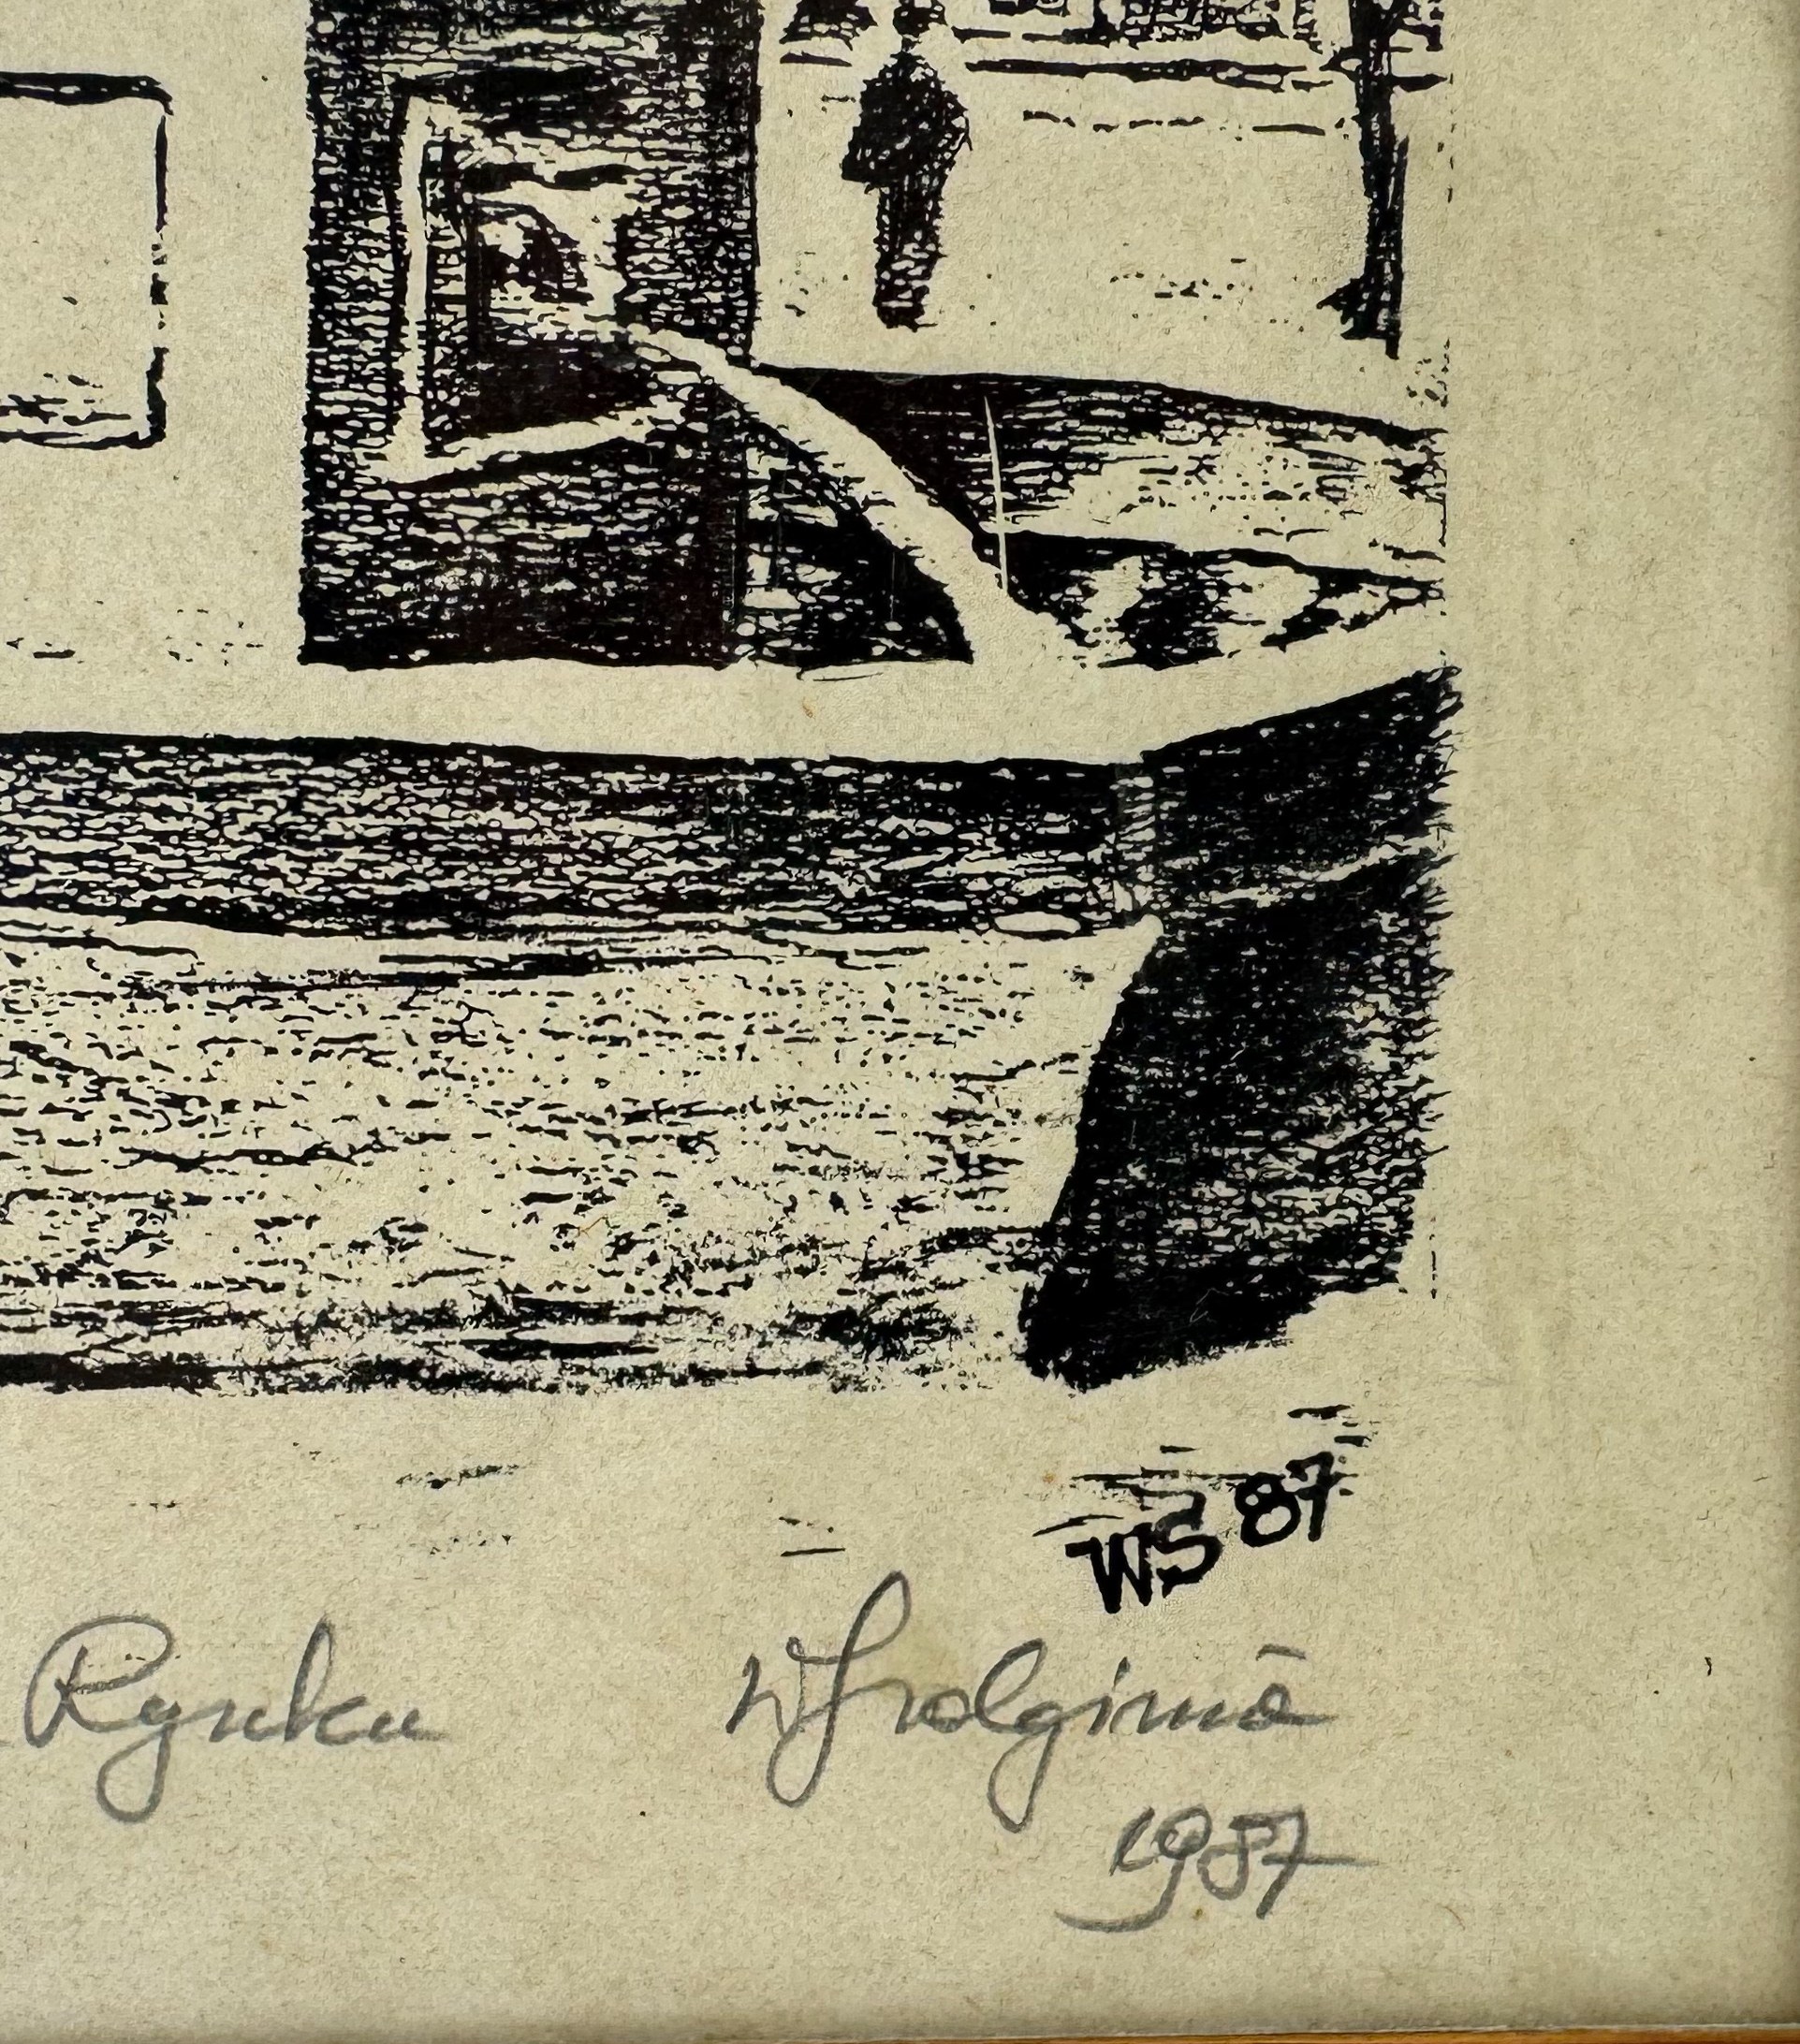 WS 87
Rynku
1987